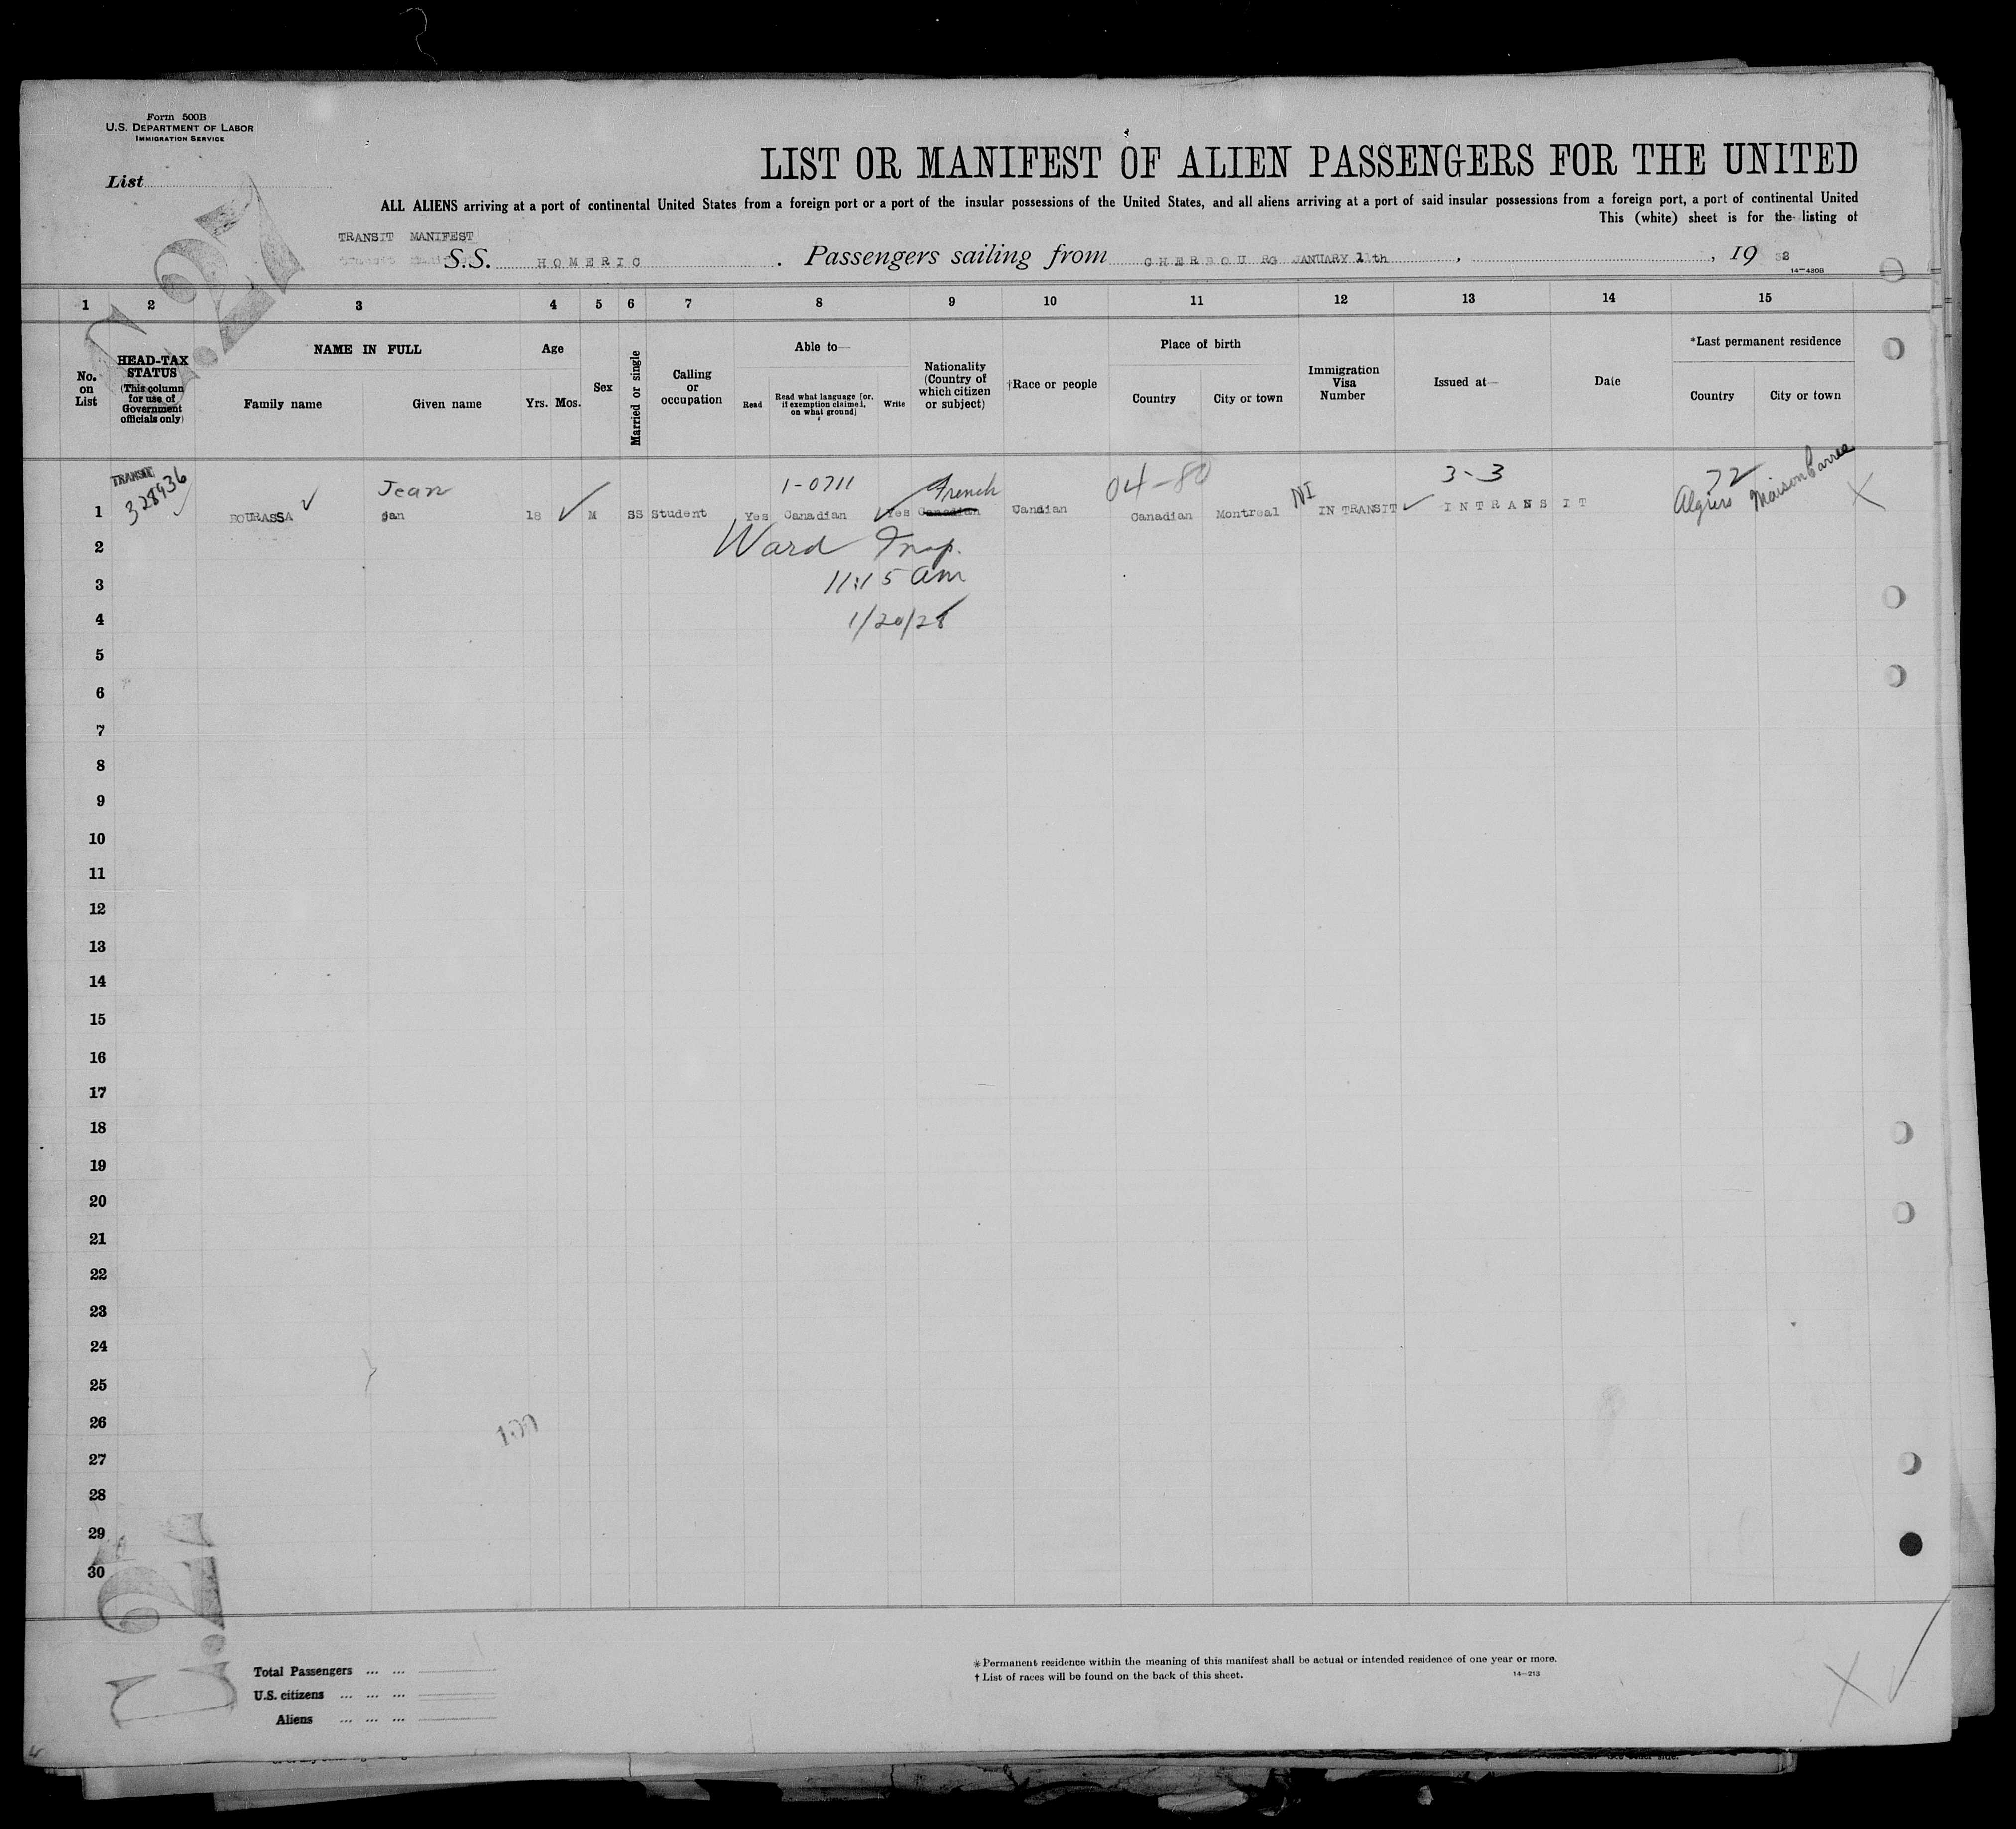 Form 500B
U.S. DEPARTMENT OF LABOR
IMMIGRATION SERVICE
List
LIST OR MANIFEST OF ALIEN PASSENGERS FOR THE UNITED
ALL ALIENS arriving at a port of continental United States from a foreign port or a port of the insular possessions of the United States, and all aliens arriving at a port of said insular possessions from a foreign port, a port of continental United
This (white) sheet is for the listing of
TRANSIT MANIFEST
S.S. HOMERIC. Passengers sailing from CHERBOU RG JANUARY 11th, , 19
14-430B
1 2 3 4 5 6 7 8 9 10 11 12 13 14 15
No. on List
HEAD-TAX STATUS (This column for use of Government officials only)
NAME IN FULL
Family name Given name
Age
Yrs. Mos.
Sex
Married or single
Calling or occupation
Able to—
Read
Read what language [or, if exemption claimed, on what ground]
Write
Nationality (Country of which citizen or subject)
†Race or people
Place of birth
Country City or town
Immigration Visa Number
Issued at—
Date
*Last permanent residence
Country City or town
TRANSIT
328936
Jean
1-0711
French
04-80
NI
3-3
72
Algiers Maison Carree
1 BOURASSA Jan 18 M SS Student Yes Canadian Yes Canadian Candian Canadian Montreal IN TRANSIT INTRANSIT
2 Ward Insp.
3 11:15 am
4 1/20/28
5
6
7
8
9
10
11
12
13
14
15
16
17
18
19
20
21
22
23
24
25
26
27
28
29
30
100
Total Passengers ... ...
U.S. citizens ... ... ...
Aliens ... ... ...
*Permanent residence within the meaning of this manifest shall be actual or intended residence of one year or more.
† List of races will be found on the back of this sheet.
14-213